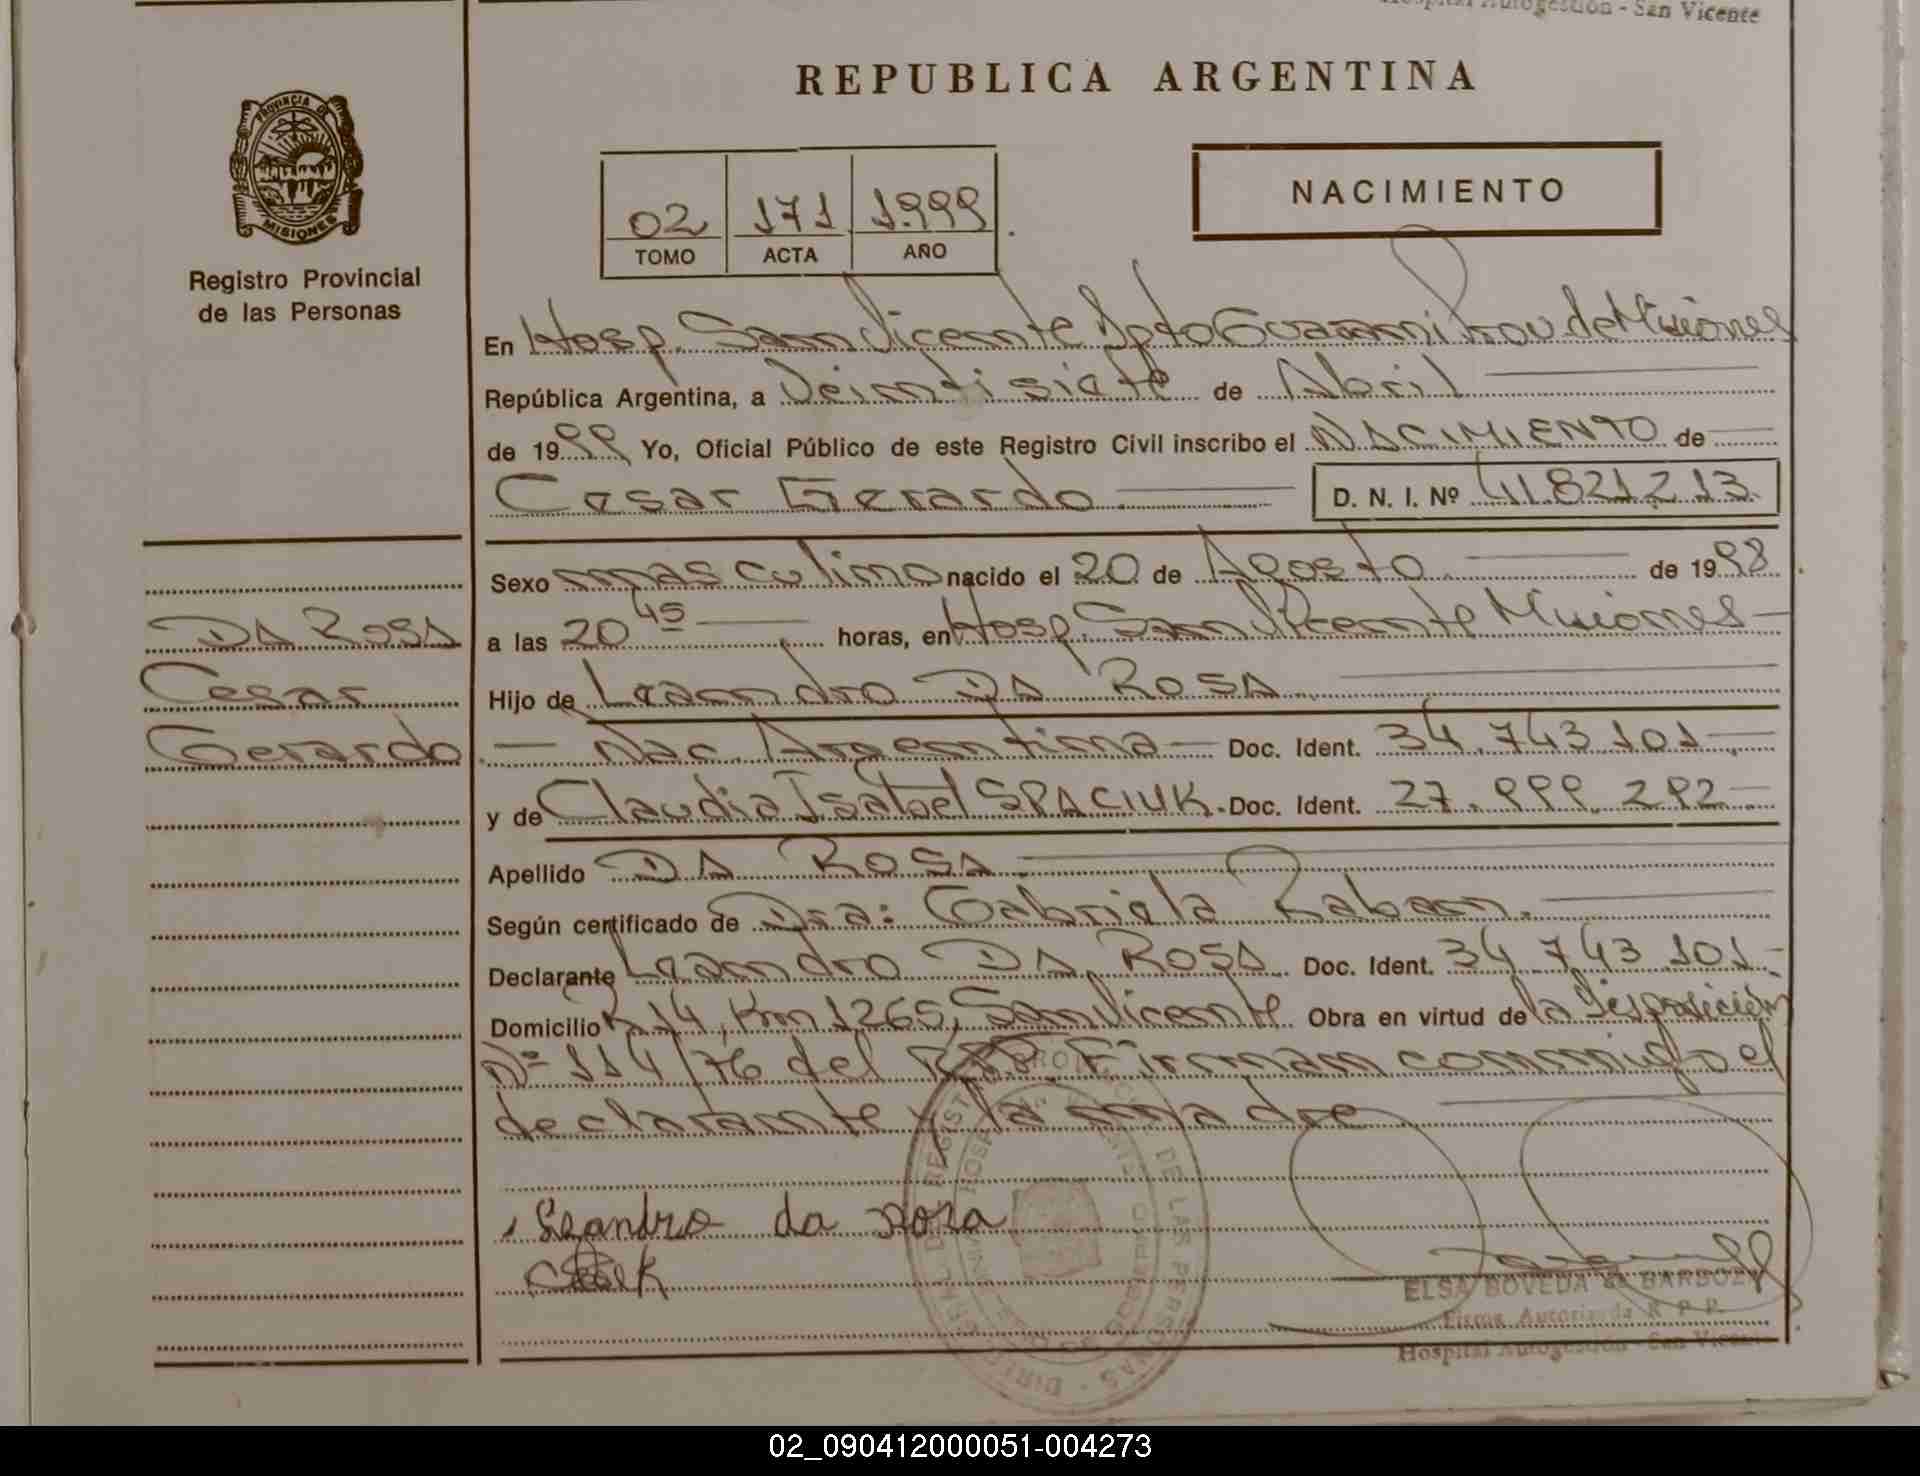 Hospital Autogestión - San Vicente
REPUBLICA ARGENTINA
PROVINCIA DE
MISIONES
Registro Provincial
de las Personas
02 171 1.999
TOMO ACTA AÑO
NACIMIENTO
En Hosp. San Vicente Dpto Guaraní Prov. de Misiones
República Argentina, a Veintisiete de Abril
de 1999 Yo, Oficial Público de este Registro Civil inscribo el NACIMIENTO de
Cesar Gerardo D. N. I. Nº 41.821.213
DA ROSA
Cesar
Gerardo
Sexo masculino nacido el 20 de Agosto de 1998
a las 20 45 horas, en Hosp. San Vicente Misiones
Hijo de Leandro DA ROSA
Nac. Argentina Doc. Ident. 34.743.101
y de Claudia Isabel SPACIUK. Doc. Ident. 27.999.292
Apellido DA ROSA
Según certificado de Dra: Gabriela
Declarante Leandro DA ROSA Doc. Ident. 34.743.101
Domicilio R 14, Km 1265, San Vicente Obra en virtud de la Disposición
Nº 114/76 del R.P.P. Firman conmigo el
declarante y la madre
Leandro da rosa
ELSA BOVEDA de BARBOZA
Firma Autorizada R.P.P.
Hospital Autogestión - San Vicente
02_090412000051-004273